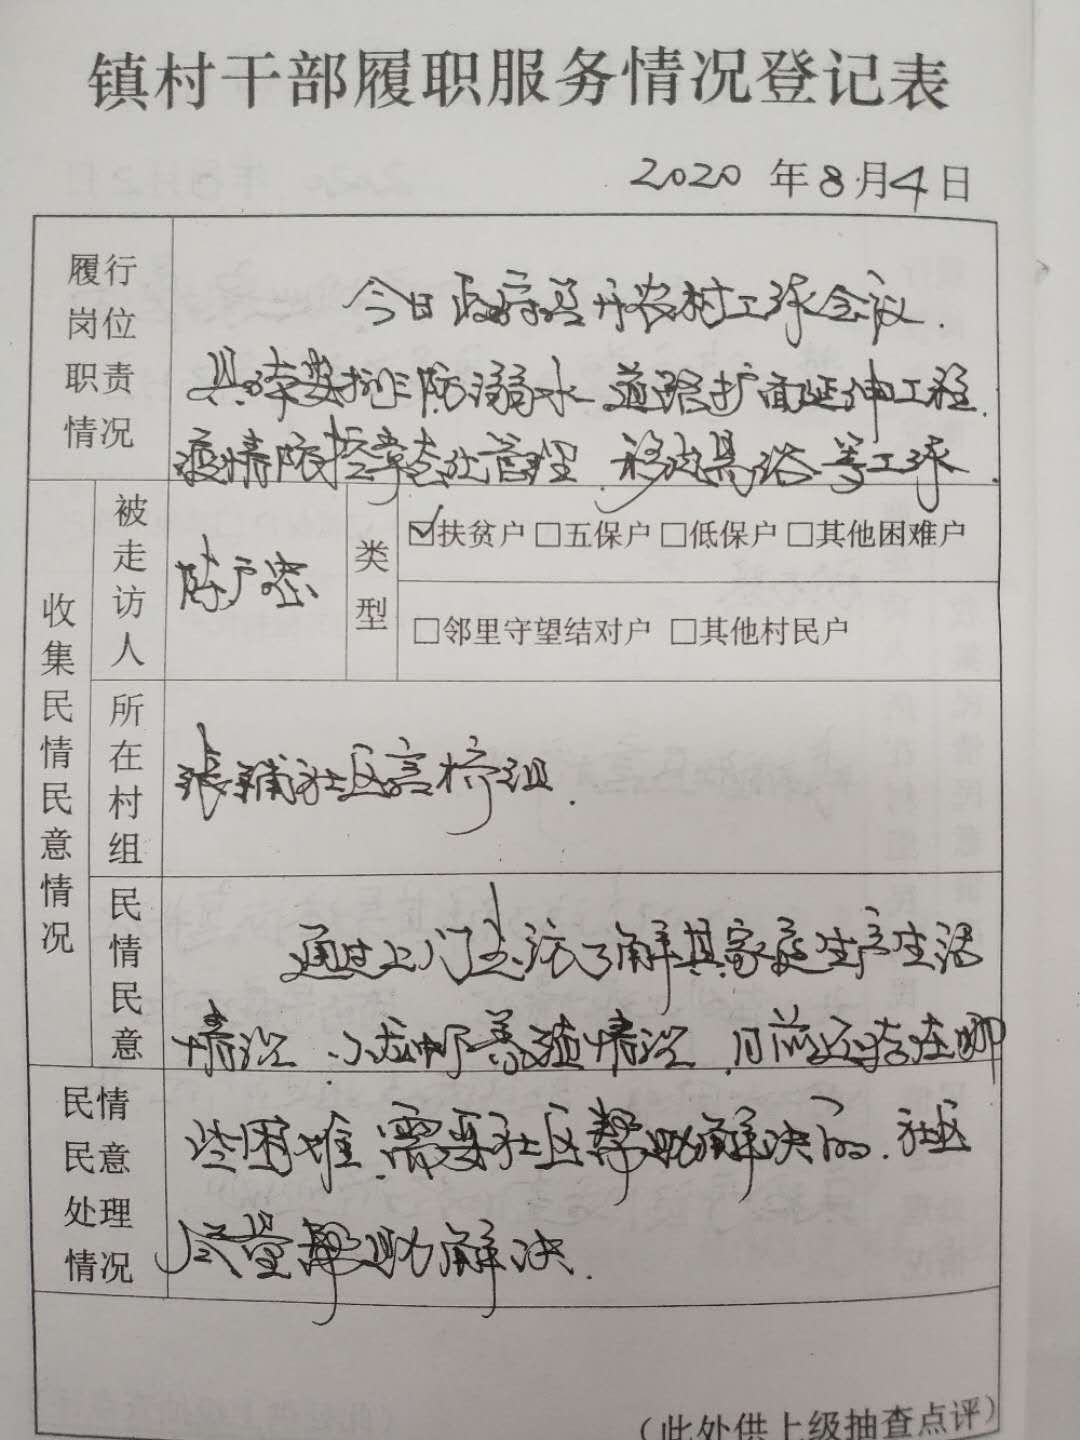 镇村干部履职服务情况登记表
2020 年 8 月 4 日
履行
岗位
职责
情况
今日政府召开农村工作会议.
具体安排防溺水 道路扩面延伸工程.
疫情防控 管理 移风易俗等工作.
收集民情民意情况
被走访人
陈户忠
类型
☑扶贫户 □五保户 □低保户 □其他困难户
□邻里守望结对户 □其他村民户
所在村组
张铺社区高桥组.
民情民意
通过上门走访了解其家庭生产生活
情况. 养殖情况. 目前还存在哪
民情
民意
处理
情况
些困难.需要社区帮助解决的.社区
尽量帮助解决.
（此处供上级抽查点评）